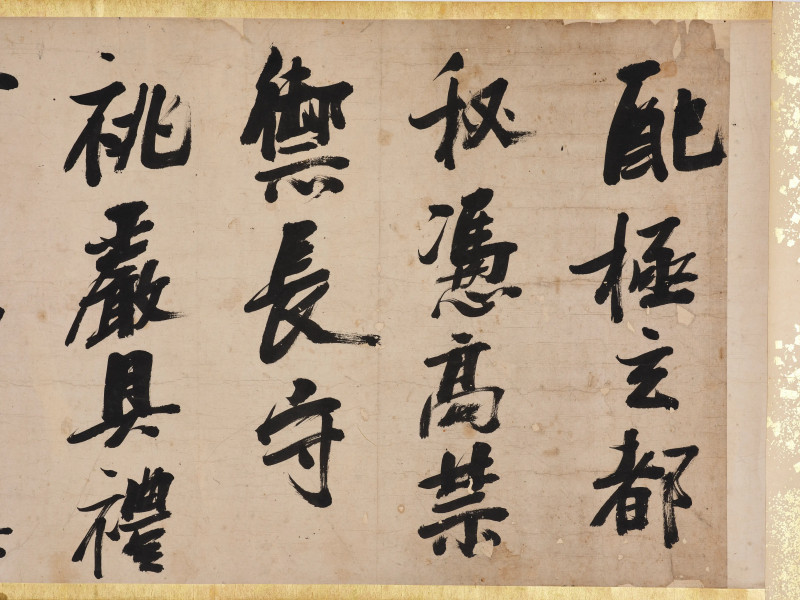 配極玄都
秘憑高禁
禦長守
祧嚴具禮